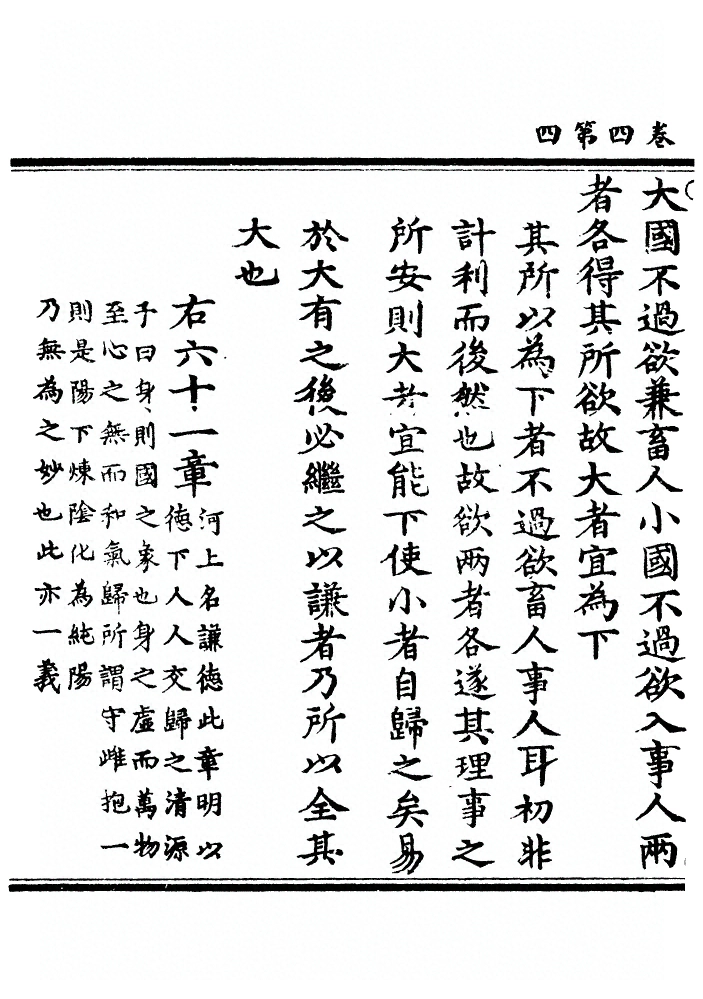 卷四第四
大國不過欲兼畜人小國不過欲入事人兩
者各得其所欲故大者宜為下
其所以為下者不過欲畜人事人耳初非
計利而後然也故欲兩者各遂其理事之
所安則大者宜能下使小者自歸之矣易
於大有之後必繼之以謙者乃所以全其
大也
右六十一章
河上名謙德此章明以
德下人人交歸之清源
子曰身則國之象也身之虛而萬物
至心之無而和氣歸所謂守雌抱一
則是陽下煉陰化為純陽
乃無為之妙也此亦一義